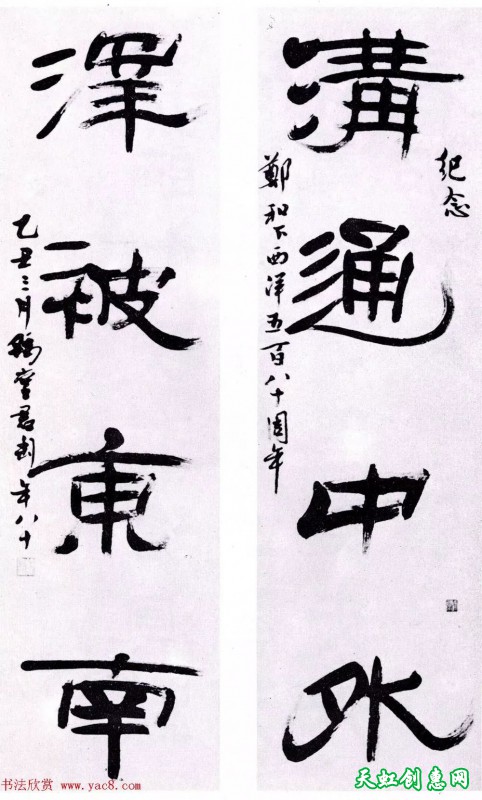 紀念
溝通中外
鄭和下西洋五百八十周年
澤被東南
乙丑三月君匋年八十
书法欣赏 www.yac8.com
天虹创惠网